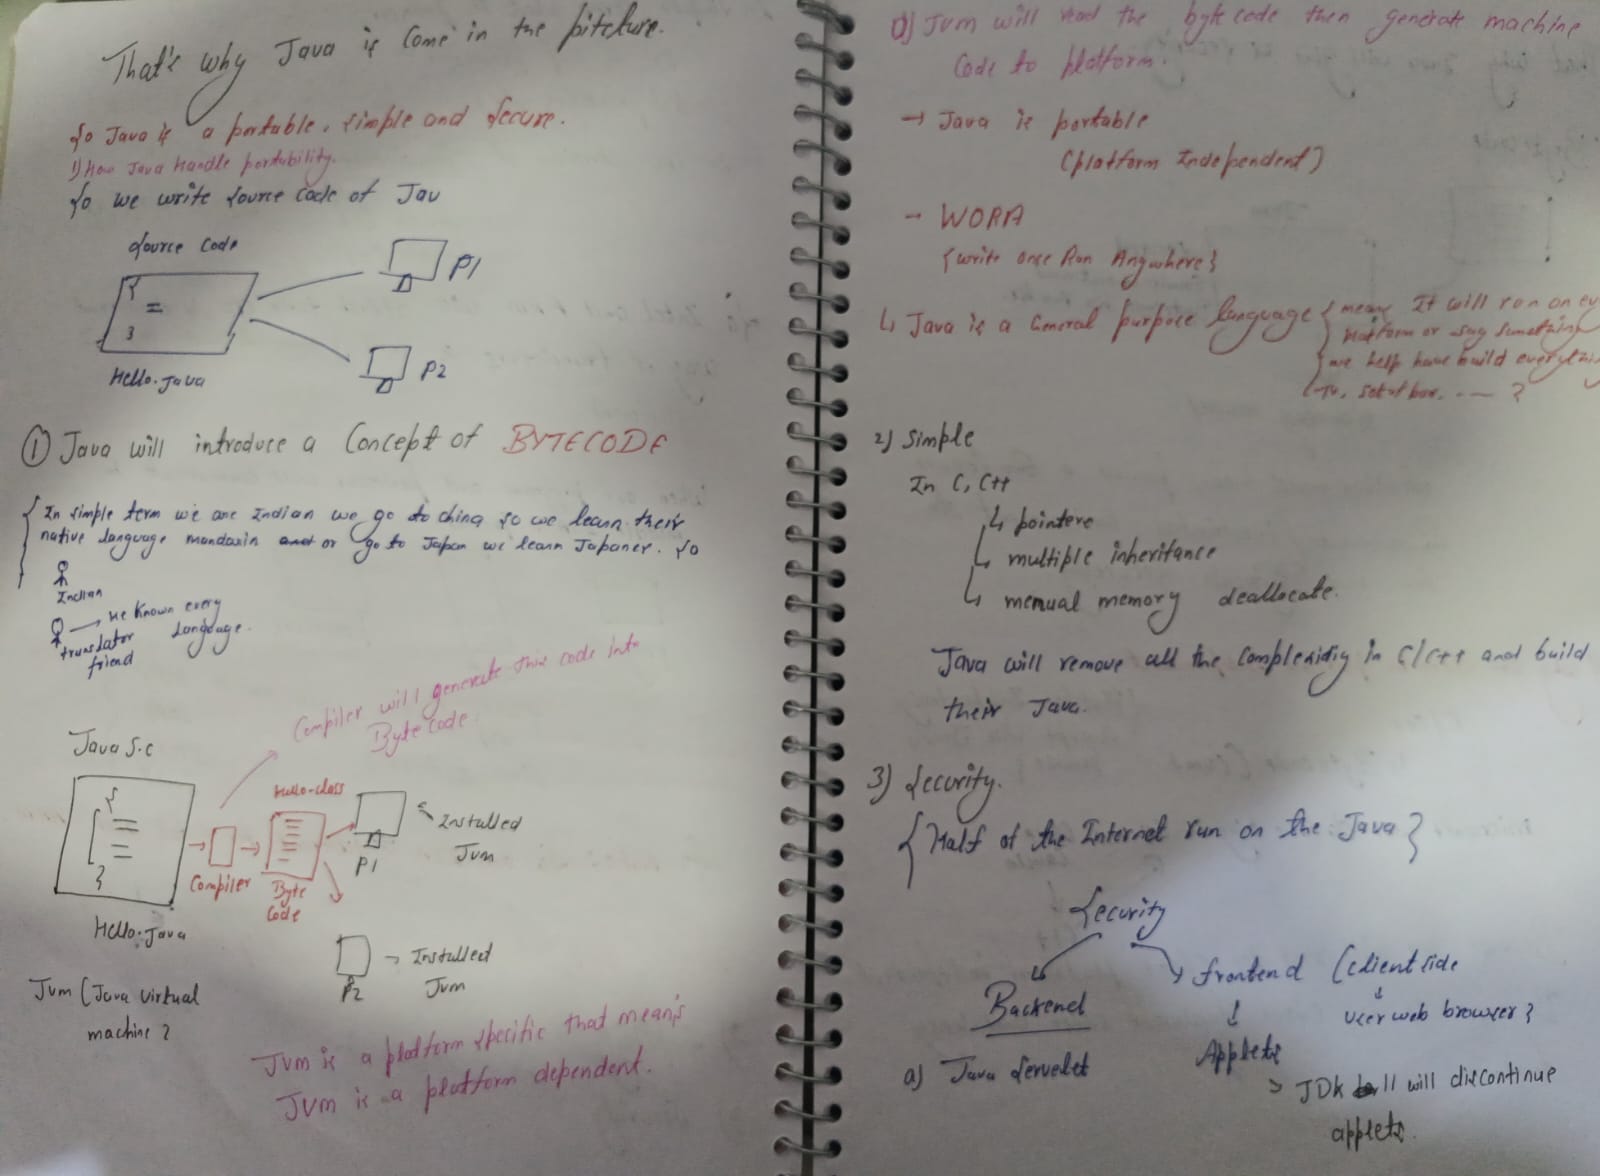 That's why Java is Come in the pitcture.
So Java is a portable, simple and secure.
1) How Java Handle portability.
So we write source code of Jav
Source Code
{
=
}
P1
P2
Hello.java
① Java will introduce a Concept of BYTECODE
{ In simple term we are Indian we go to china so we learn their
native language mandarin or go to Japan we learn Japanes. So
Indian
→ He Known every
Language.
translator
friend
Compiler will generate this code into
Byte Code.
Java S.C
Hello-class
{
}
→ Compiler →
Byte
Code
P1
Installed
Jvm
Hello.Java
P2
→ Installed
Jvm
Jvm (Java virtual
machine }
Jvm is a platform specific that mean's
Jvm is a platform dependent.
a) Jvm will read the byte code then generate machine
Code to platform.
→ Java is portable
(platform Independent)
→ WORA
{write once Run Anywhere}
↳ Java is a General purpose language { mean It will run on ev
platform or say sumething
we help have build everythin
Tv, setof box, .. — }
2) Simple
In C, C++
↳ pointers
↳ multiple inheritance
↳ menual memory deallocate.
Java will remove all the Complexidiy in C/C++ and build
their Java.
3) Security.
{ Half of the Internet run on the Java }
Security
Backend
frontend (client side
↓
user web browser}
↓
Applets
a) Java Servelet
> JDK 11 will discontinue
applets.